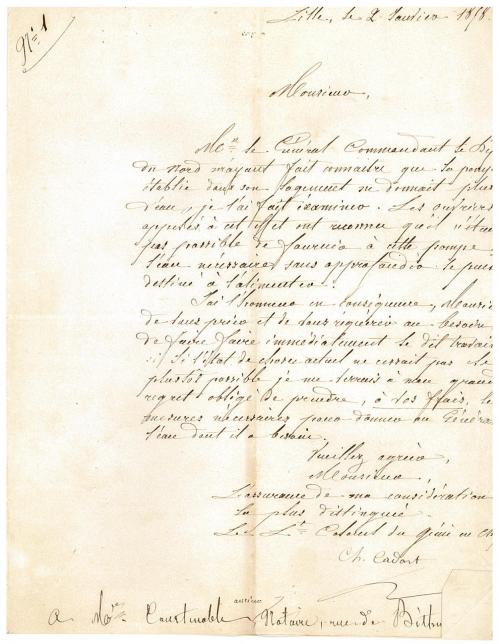 N° 1
Lille, le 2 Janvier 1858.
Monsieur,
Mr le Général Commandant le
du Nord m'ayant fait connaître que la pompe
établie dans son logement ne donnait plus
d'eau, je l'ai fait examiner. Les ouvriers
appelés à cet effet ont reconnu qu'il n'était
pas possible de fournir à cette pompe
l'eau nécessaire sans approfondir le puits
destiné à l'alimenter.
J'ai l'honneur en conséquence, Monsieur
de vous prier et de vous requérir au besoin
de faire faire immédiatement le dit travail
Si l'état de choses actuel ne cessait pas le
plustôt possible je me verrais à mon grand
regret obligé de prendre, à vos frais, les
mesures nécessaires pour donner au Général
l'eau dont il a besoin.
Veuillez agréer,
Monsieur,
l'assurance de ma considération
la plus distinguée.
Le Lt Colonel du génie en
Ch. Cadart
ancien
A Mr Courtmable Notaire, rue de